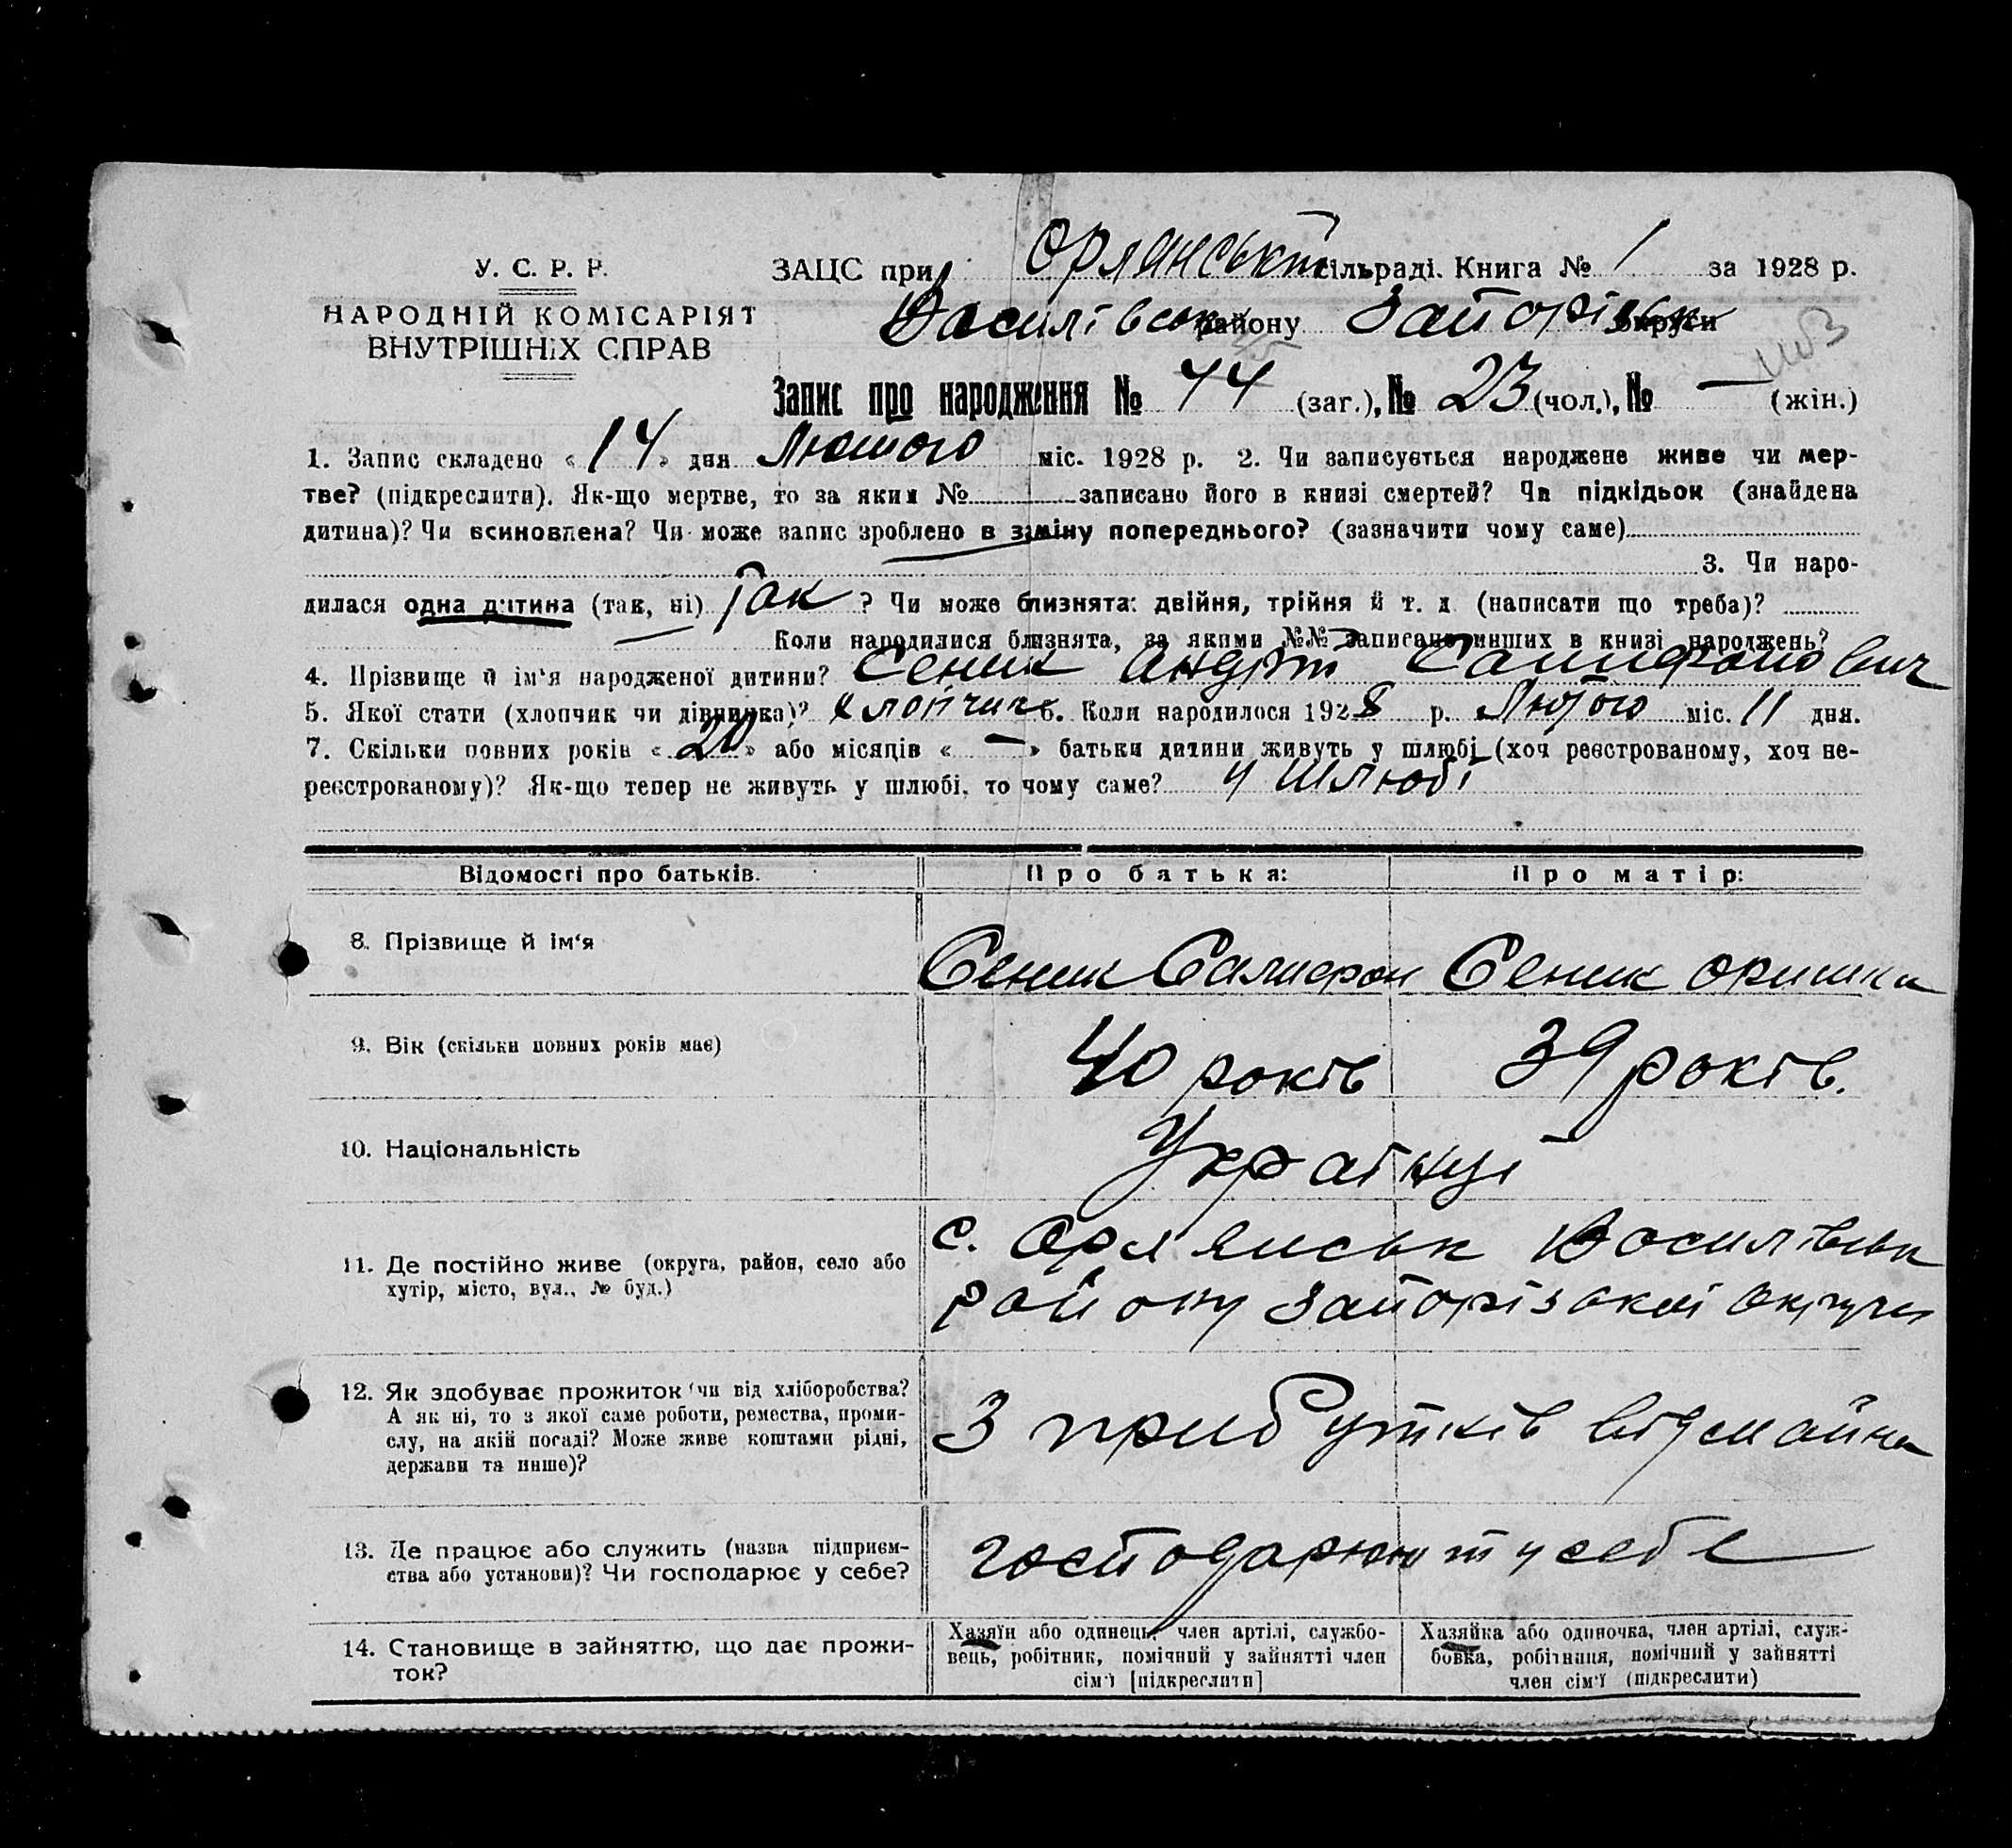 У. С. Р. Р.
НАРОДНІЙ КОМІСАРІЯТ
ВНУТРІШНІХ СПРАВ
ЗАЦС при Орлянській сільраді. Книга № 1 за 1928 р.
Василівськ району Запорізьк округи
Запис про народження № 44 (заг.), № 23 (чол.), № — (жін.)
1. Запис складено « 14 » дня Лютого міс. 1928 р. 2. Чи записується народжене живе чи мер-
тве? (підкреслити). Як-що мертве, то за яким № записано його в книзі смертей? Чи підкідьок (знайдена
дитина)? Чи всиновлена? Чи може запис зроблено в заміну попереднього? (зазначити чому саме)
3. Чи наро-
дилася одна дитина (так, ні) Так ? Чи може близнята: двійня, трійня й т. д. (написати що треба)?
Коли народилися близнята, за якими №№ записано инших в книзі народжень?
4. Прізвище й ім'я народженої дитини? Сеник Андрій
5. Якої стати (хлопчик чи дівчинка)? Хлопчик 6. Коли народилося 1928 р. Лютого міс. 11 дня.
7. Скільки повних років « 20 » або місяців « — » батьки дитини живуть у шлюбі (хоч реєстрованому, хоч не-
реєстрованому)? Як-що тепер не живуть у шлюбі, то чому саме? у шлюбі
Відомості про батьків. Про батька: Про матір:
8. Прізвище й ім'я Сеник Сеник Оришка
9. Вік (скільки повних років має) 40 років 39 років.
10. Національність Українці
11. Де постійно живе (округа, район, село або
хутір, місто, вул., № буд.)
с. Орлянськ Василівськ
району Запорізької округи
12. Як здобуває прожиток (чи від хліборобства?
А як ні, то з якої саме роботи, ремества, проми-
слу, на якій посаді? Може живе коштами рідні,
держави та инше)?
З прибутків від майна
13. Де працює або служить (назва підприєм-
ства або установи)? Чи господарює у себе?
господарюють у себе
14. Становище в зайняттю, що дає прожи-
ток?
Хазяїн або одинець, член артілі, службо-
вець, робітник, помічний у зайнятті член
сім'ї [підкреслити]
Хазяйка або одиночка, член артілі, служ-
бовка, робітниця, помічний у зайнятті
член сім'ї (підкреслити)